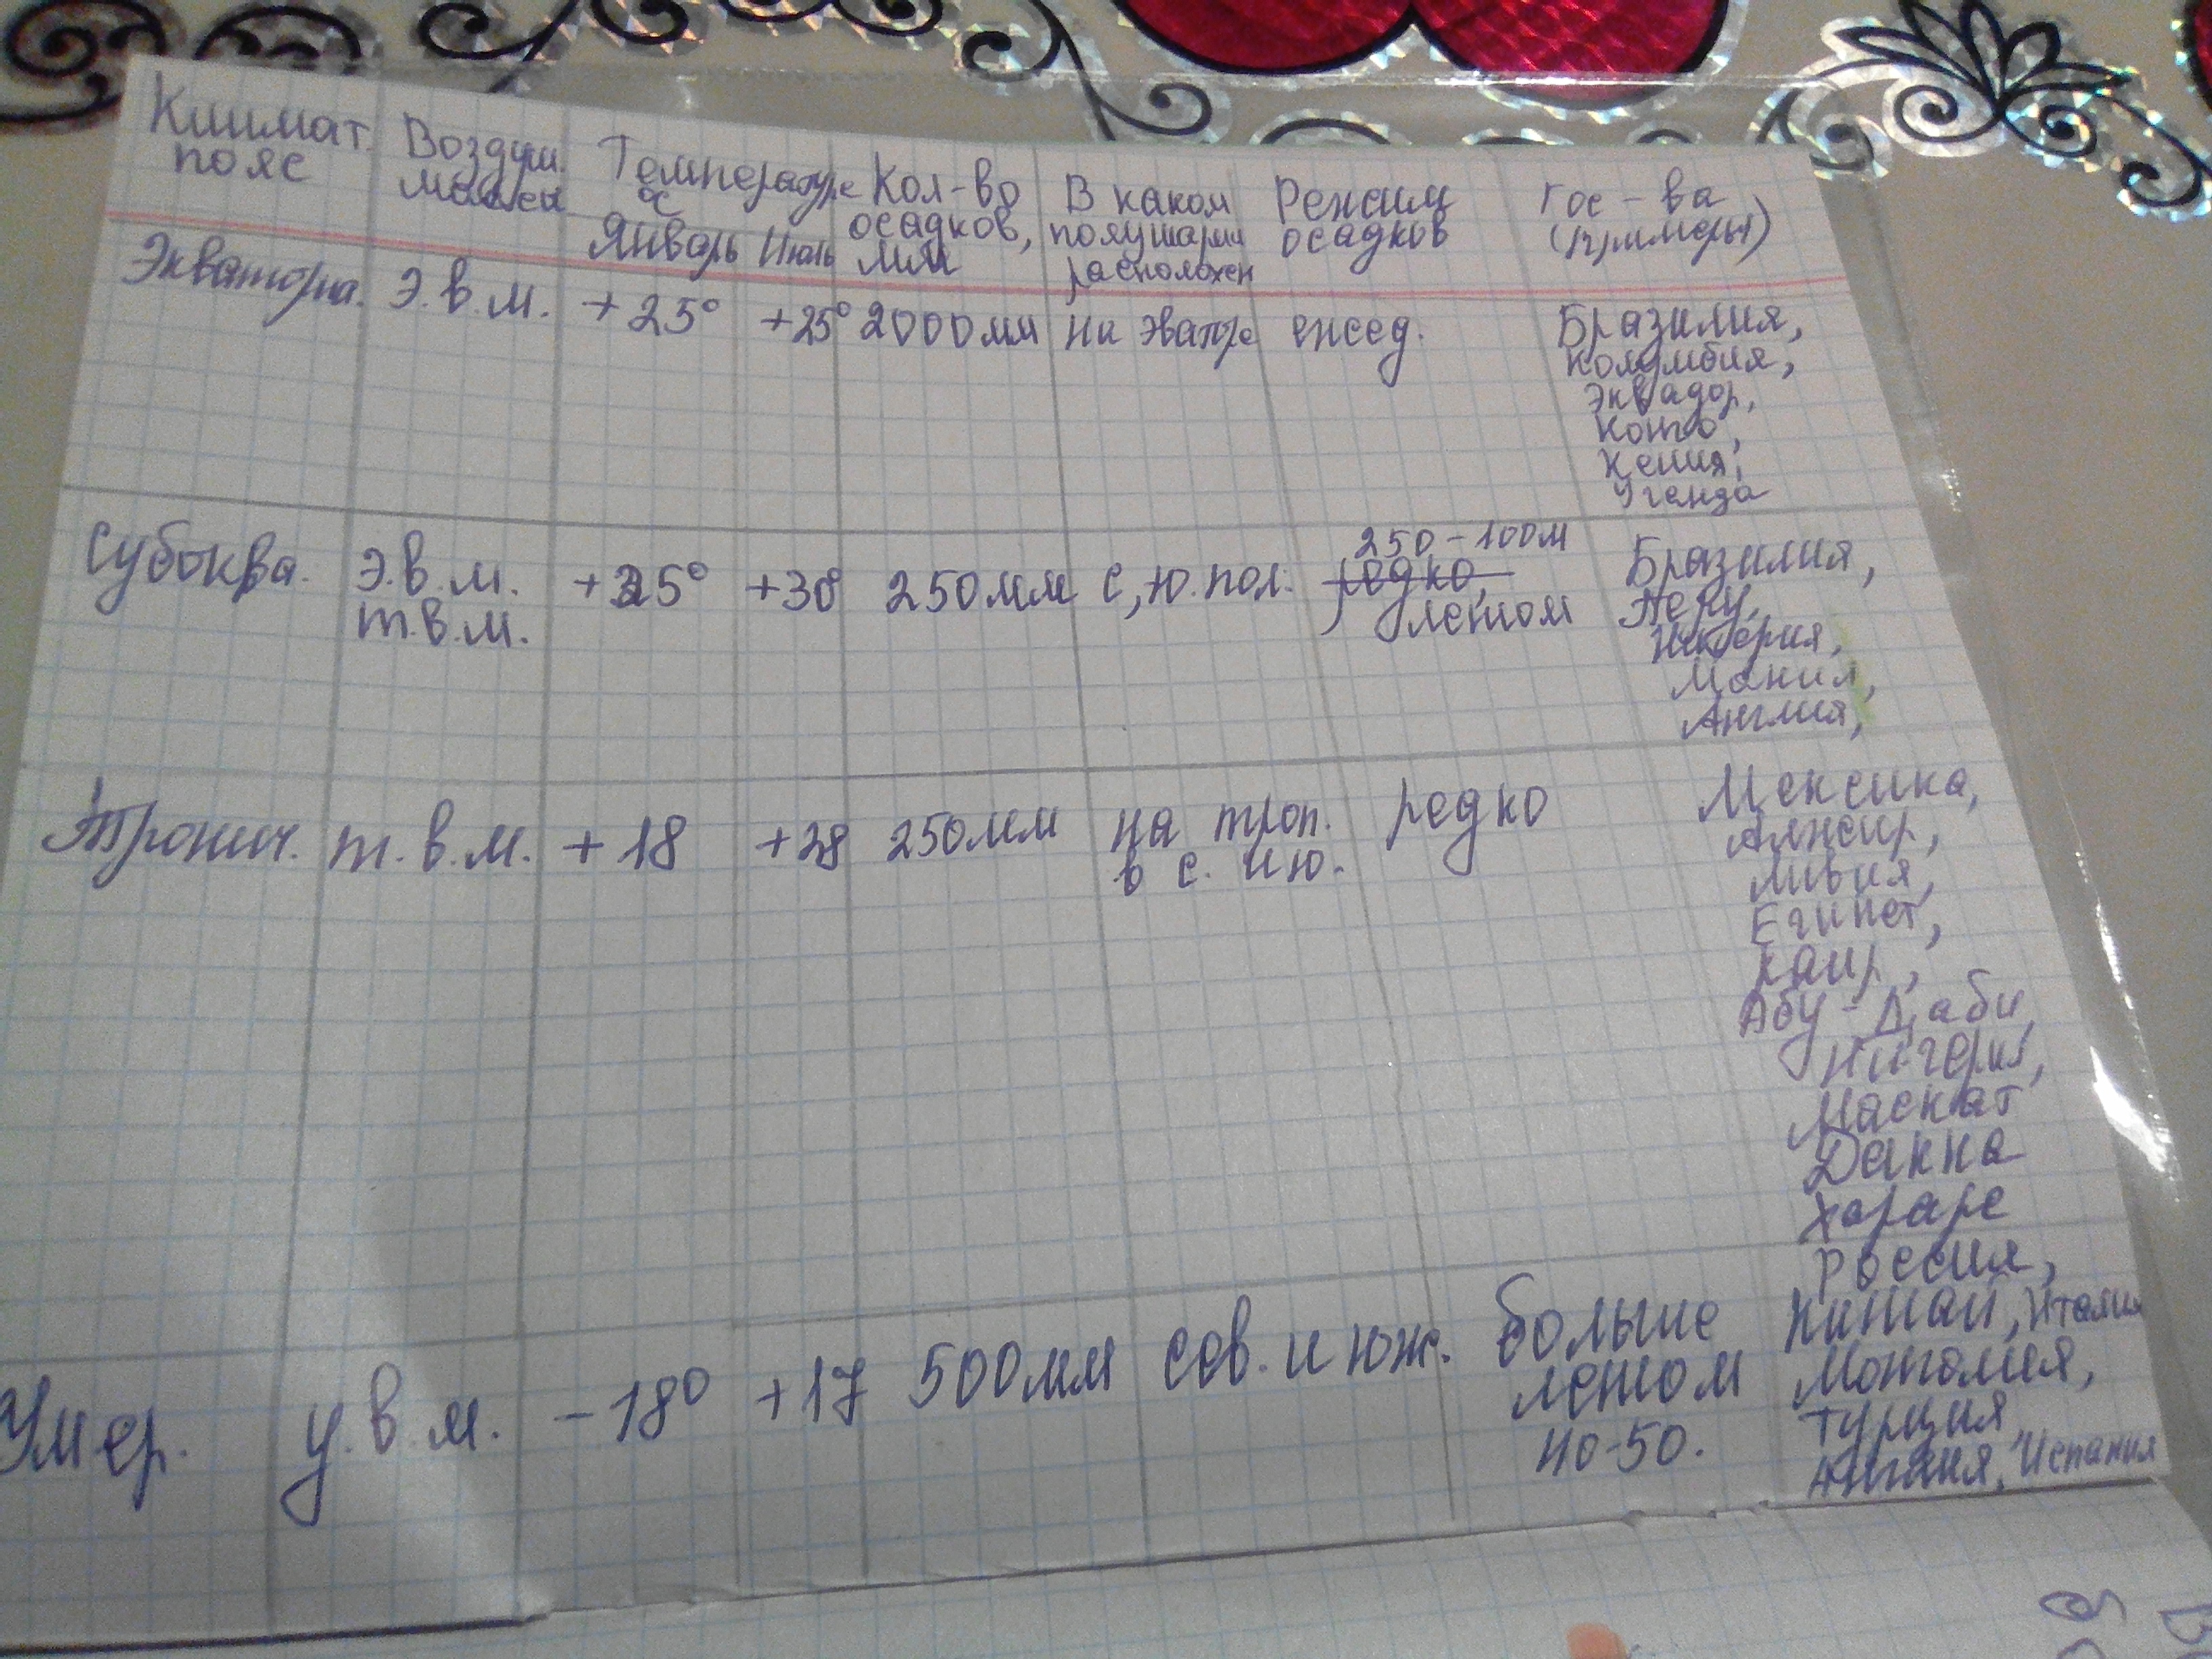 Климат. пояс
Воздуш. массы
Температуре °C
Январь Июль
Кол-во осадков, мм
В каком полушарии расположен
Режим осадков
Гос-ва (примеры)
Экваториа. Э.в.м. +25° +25° 2000мм на экваторе ежед. Бразилия,
Колумбия,
Эквадор,
Конго,
Кения,
Уганда
Субэква. Э.в.м. +25° +30° 250мм С,ю.пол. 250-100м Бразилия,
т.в.м. редко, Перу,
летом
Манил,
Англия,
Тропич. т.в.м. +18 +28 250мм на троп. редко Мексика,
в с. и ю. Алжир,
Ливия,
Египет,
Каир,
Абу-Даби,
Нигерия,
Маскат
Дакка
Хараре
Россия,
Умер. у.в.м. -18° +17 500мм сев. и юж. больше Китай, Италия
летом Монголия,
40-50. Турция,
Англия, Испания